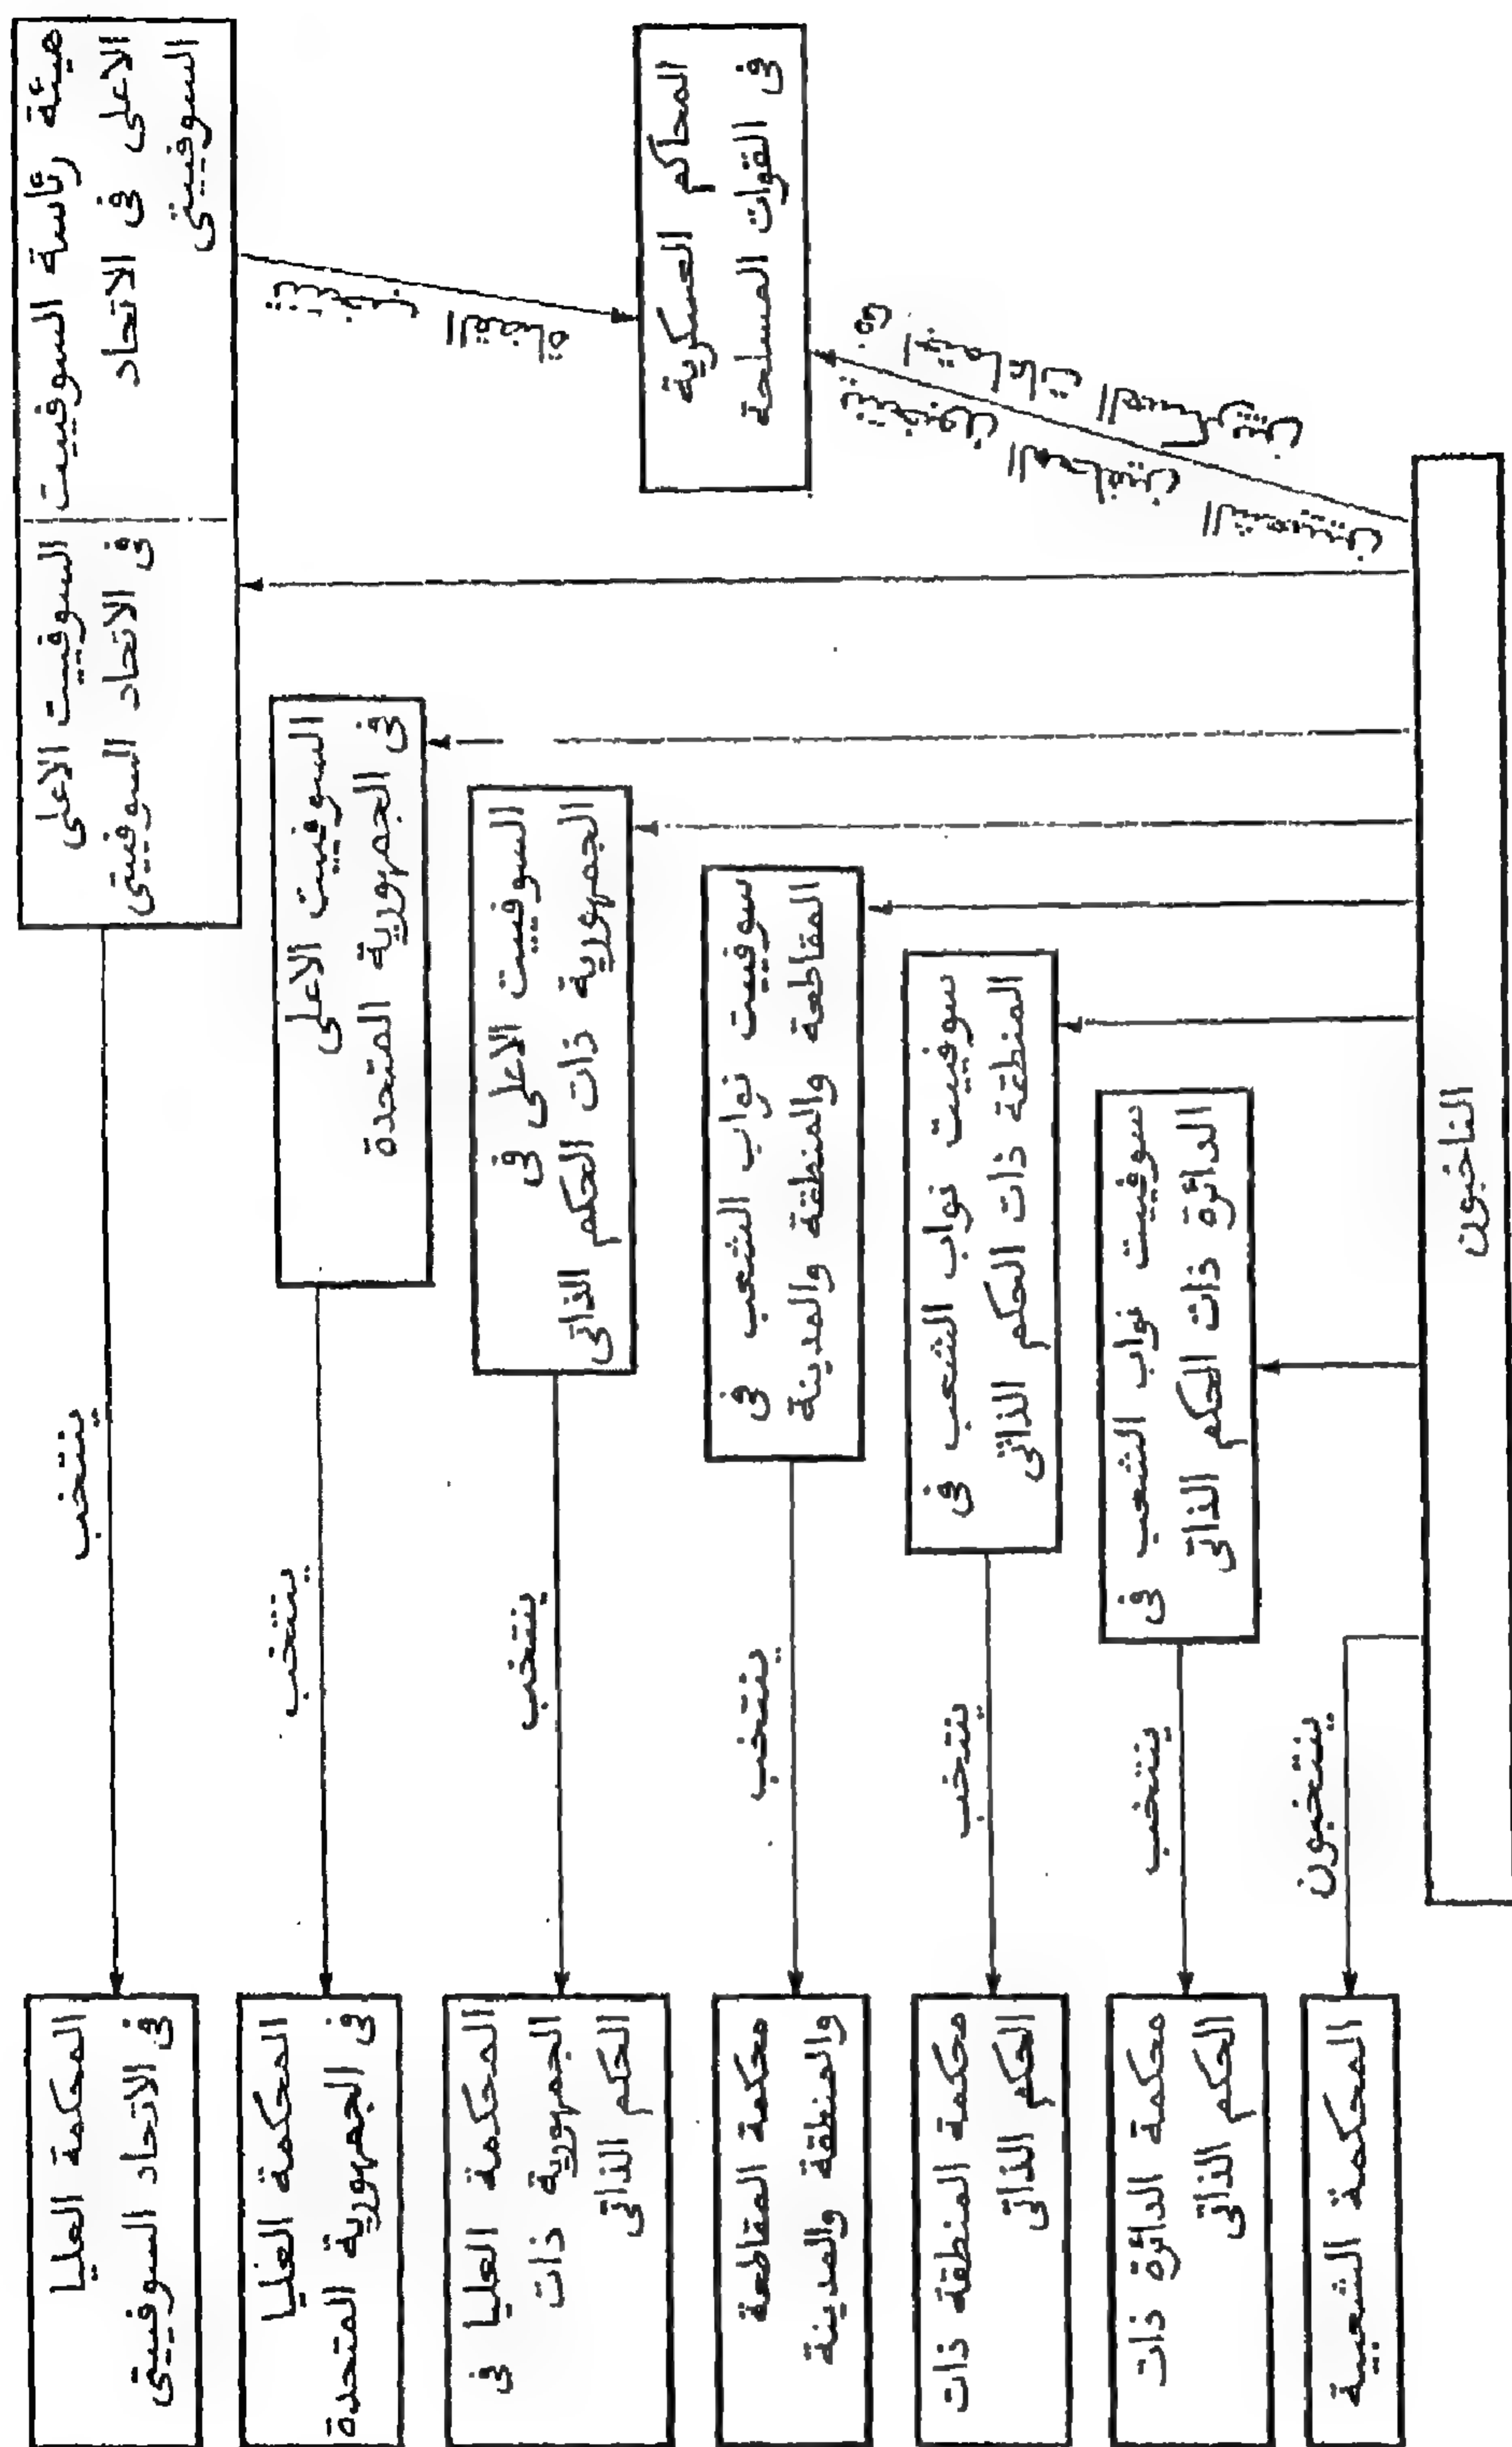 هيئة رئاسة السوفييت
الاعلى فى الاتحاد
السوفييتى
السوفييت الاعلى
فى الاتحاد السوفييتى
القضاة
المحاكم العسكرية
فى القوات المسلحة
المحلفين الشعبيين
السوفييت الاعلى
فى الجمهورية المتحدة
السوفييت الاعلى فى
الجمهورية ذات الحكم الذاتى
سوفييت نواب الشعب فى
المقاطعة والمنطقة والمدينة
سوفييت نواب الشعب فى
المنطقة ذات الحكم الذاتى
سوفييت نواب الشعب فى
الدائرة ذات الحكم الذاتى
الناخبون
ينتخب
ينتخب
ينتخب
ينتخب
ينتخب
ينتخب
ينتخبون
المحكمة العليا
فى الاتحاد السوفييتى
المحكمة العليا
فى الجمهورية المتحدة
المحكمة العليا فى
الجمهورية ذات
الحكم الذاتى
محكمة المقاطعة
والمنطقة والمدينة
محكمة المنطقة ذات
الحكم الذاتى
محكمة الدائرة ذات
الحكم الذاتى
المحكمة الشعبية